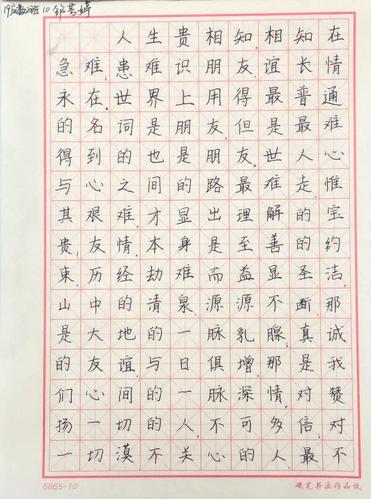 10
人生贵相知，相知在
急难，患难识朋友谊长情
永在世界上用得最普通
的名词是朋友，但是最难
得到的也是朋友。世人心
与心之间的路最难走，惟
其艰难，才显出理解的宝
贵，友情本身是至善的约
束，历经劫难而益显圣洁，那
山中的清泉源源不断，那
是大地的一脉乳腺，真诚
的友谊与日俱增，那是我
们心间的一脉深情，对赞
扬一切的人，不可多信，对
一切漠不关心的人最不
6865-10
硬笔书法作品纸